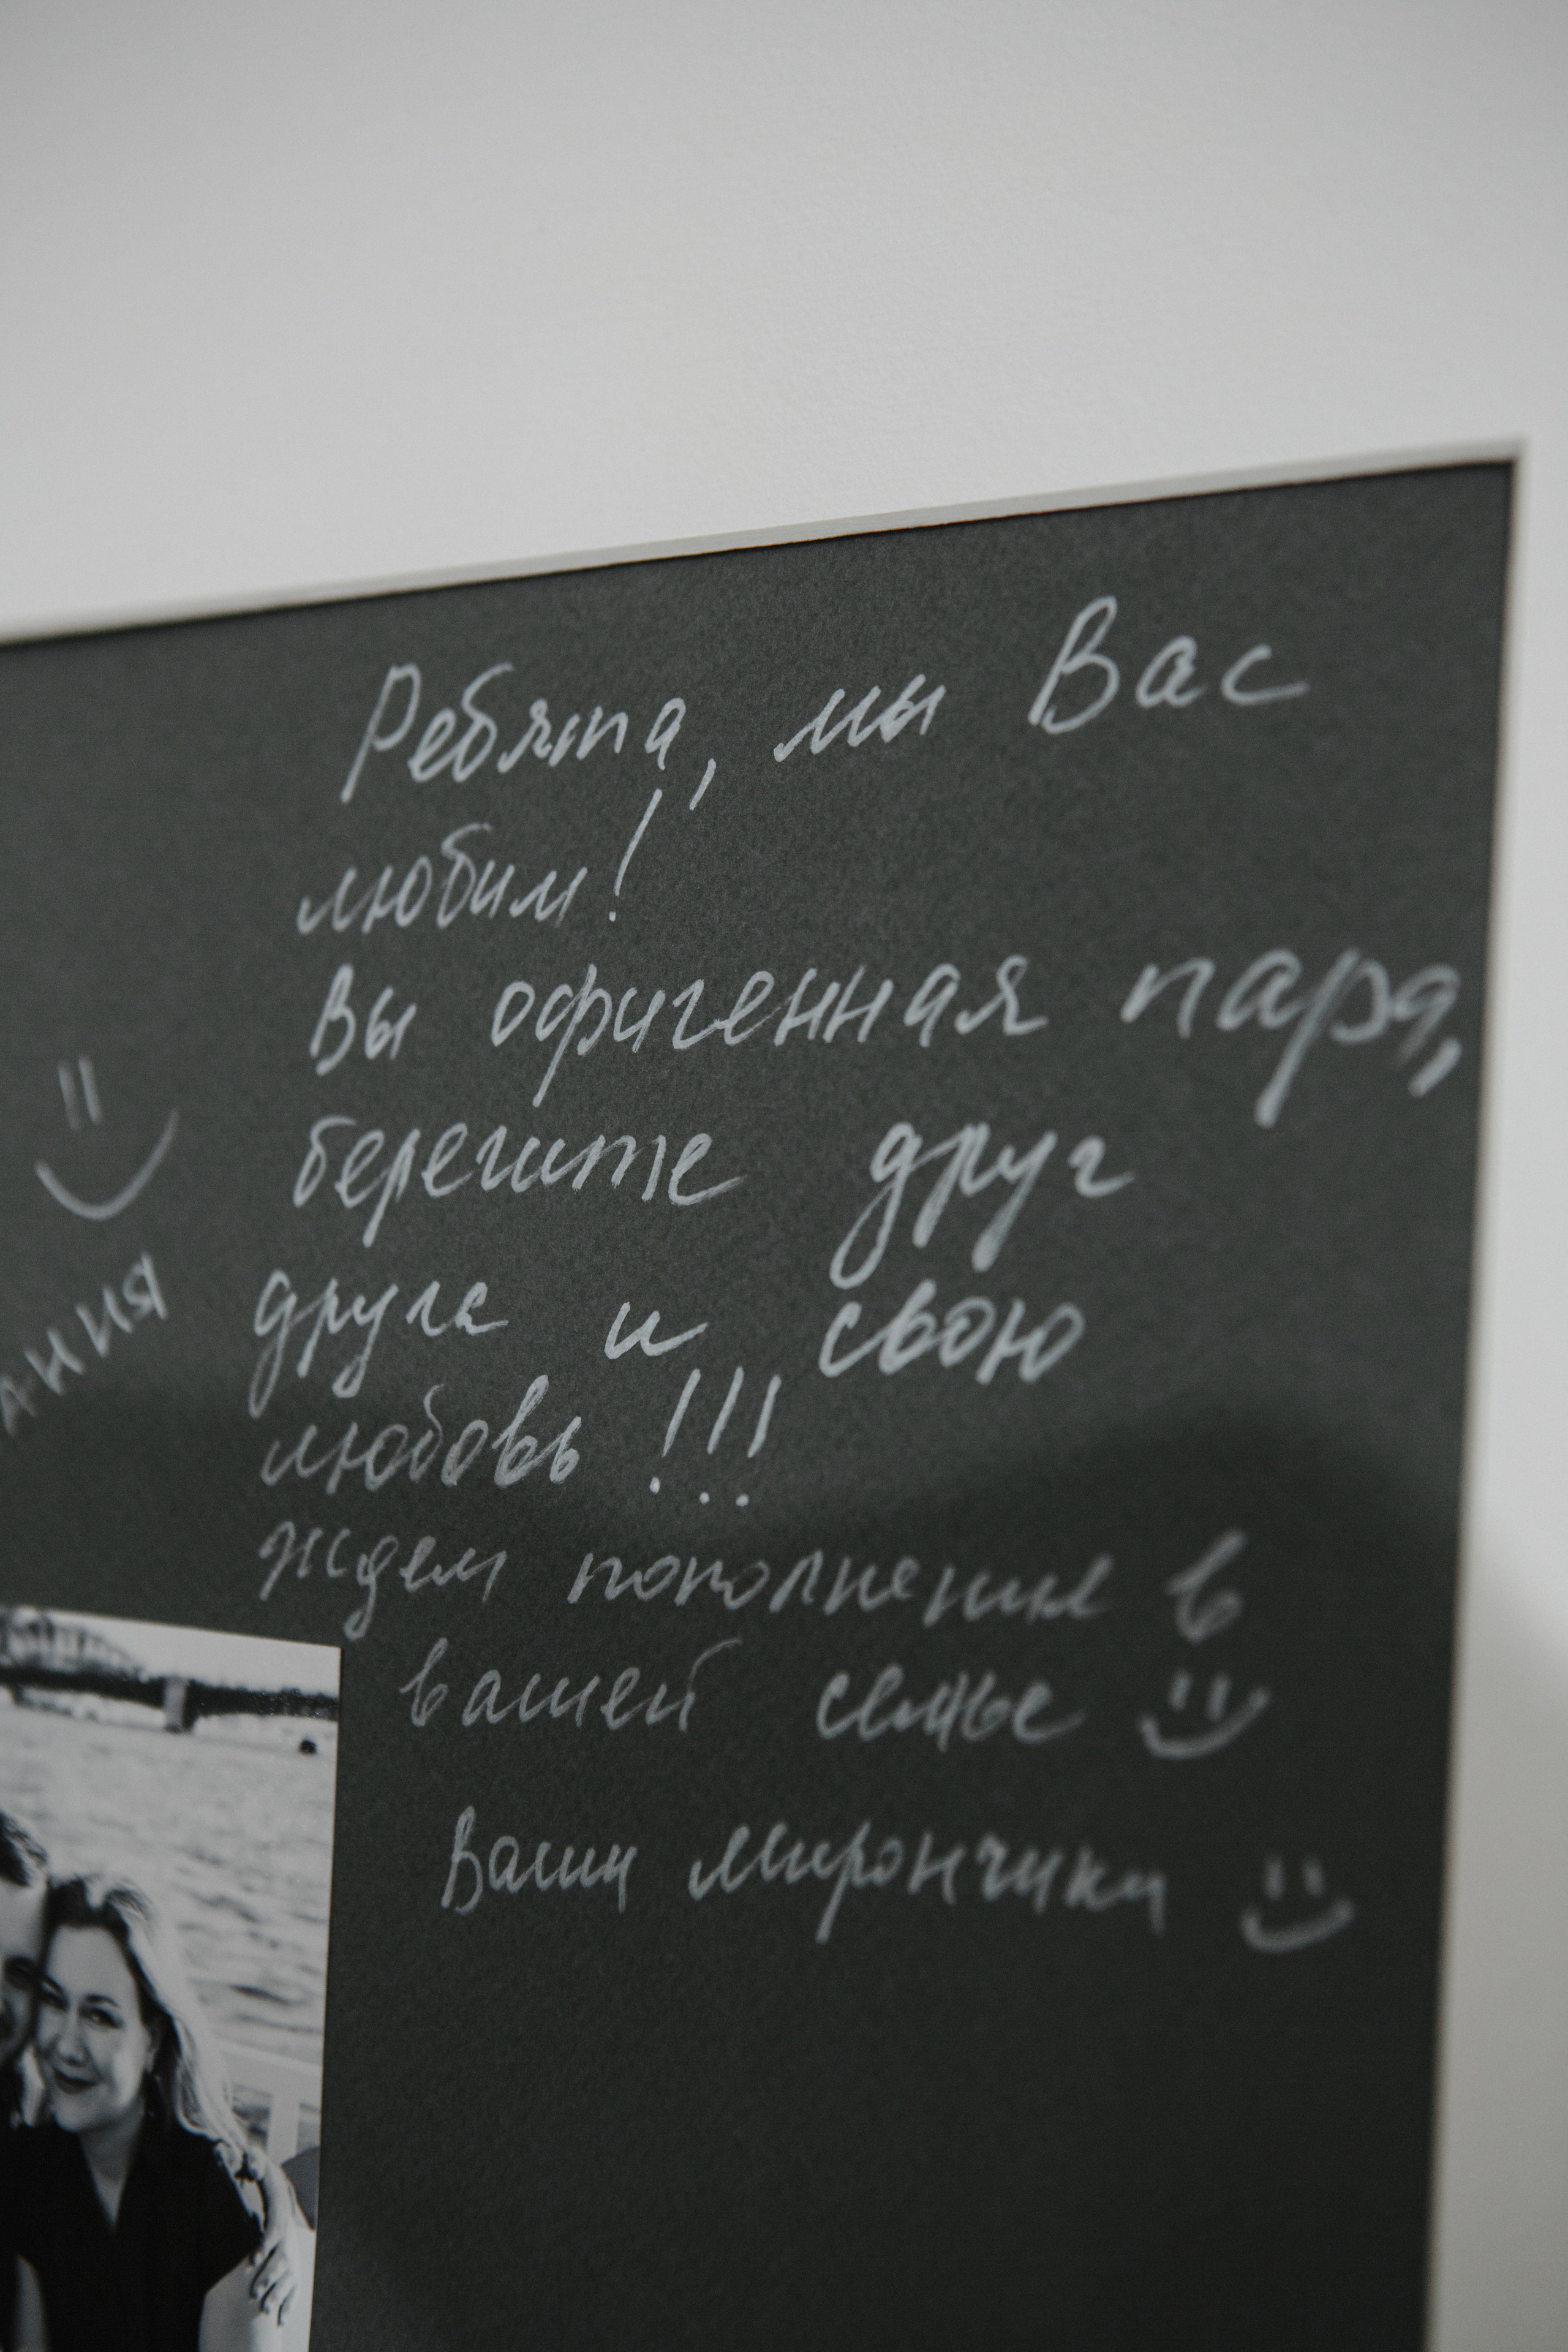 Ребята, мы Вас
любим!
Вы офигенная пара,
берегите друг
друга и свою
любовь!!!
ждем пополнения в
вашей семье
Ваши Мирончики
ания